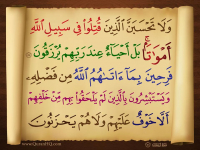 وَلَا تَحْسَبَنَّ الَّذِينَ قُتِلُوا فِي سَبِيلِ اللَّهِ
أَمْوَٰتًۢا بَلْ أَحْيَآءٌ عِندَ رَبِّهِمْ يُرْزَقُونَ
فَرِحِينَ بِمَآ ءَاتَىٰهُمُ اللَّهُ مِن فَضْلِهِۦ
وَيَسْتَبْشِرُونَ بِالَّذِينَ لَمْ يَلْحَقُوا بِهِم مِّنْ خَلْفِهِمْ
أَلَّا خَوْفٌ عَلَيْهِمْ وَلَا هُمْ يَحْزَنُونَ